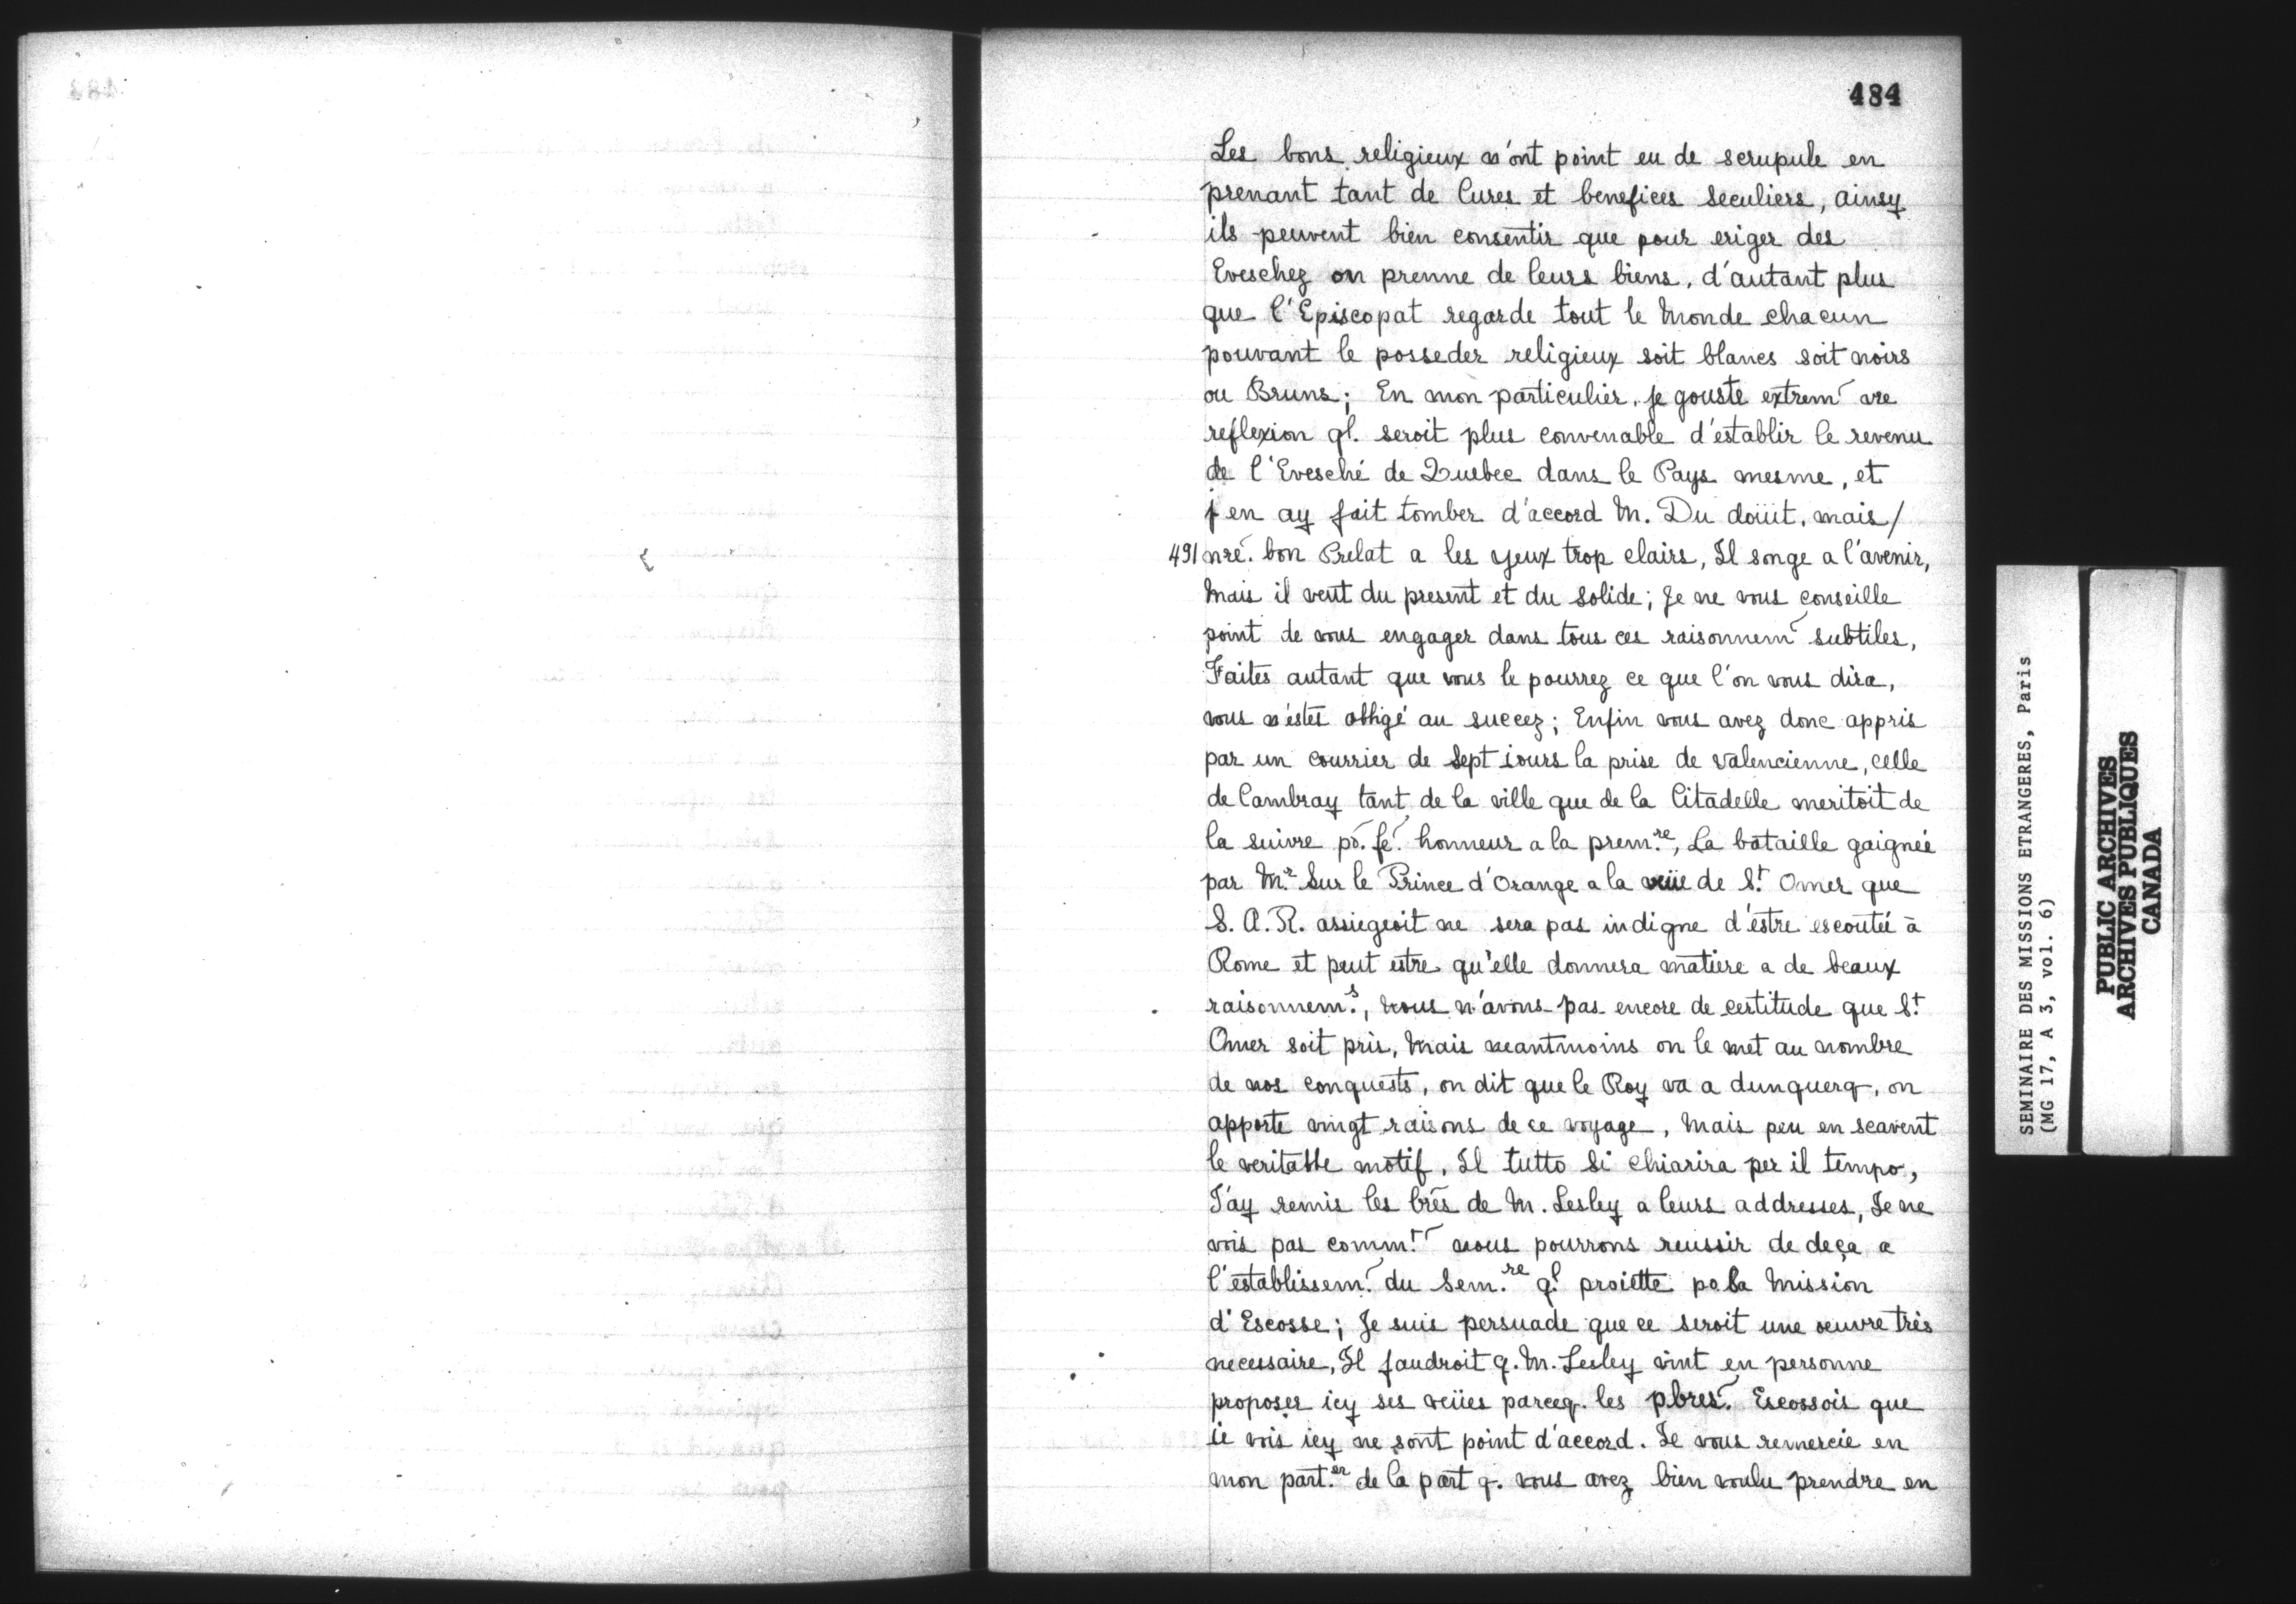 484
Les bons religieux n'ont point eu de scrupule en
prenant tant de Cures et benefices seculiers, ainsy
ils peuvent bien consentir que pour eriger des
Eveschez on prenne de leurs biens, d'autant plus
que l'Episcopat regarde tout le Monde chacun
pouvant le posseder religieux soit blancs soit noirs
ou Bruns; En mon particulier, je gouste extrem~ vre
reflexion ql. seroit plus convenable d'establir le revenu
de l'Evesché de Quebec dans le Pays mesme, et
j'en ay fait tomber d'accord M. Du doüit, mais/
491 nre~. bon Prelat a les yeux trop clairs, Il songe a l'avenir,
Mais il veut du present et du solide; Je ne vous conseille
point de vous engager dans tous ces raisonnem~ subtiles,
Faites autant que vous le pourrez ce que l'on vous dira,
vous n'estes obligé au succez; Enfin vous avez donc appris
par un courrier de Sept iours la prise de Valencienne, celle
de Cambray tant de la ville que de la Citadelle meritoit de
la suivre po~. fe~. honneur a la prem.re, La bataille gaignée
par M.r Sur le Prince d'Orange a la veüe de S.t Omer que
S. A. R. assiegeoit ne sera pas indigne d'estre escoutée à
Rome et peut estre qu'elle donnera matiere a de beaux
raisonnem.s, Nous n'avons pas encore de certitude que S.t
Omer soit pris, Mais neantmoins on le met au nombre
de nos conquests, on dit que le Roy va a dunquerq, on
apporte vingt raisons de ce voyage, Mais peu en scavent
le veritable motif, Il tutto si chiarira per il tempo,
J'ay remis les lrēs de M. Lesley a leurs addresses, Je ne
vois pas comm.t~ nous pourrons reussir de deça a
l'establissem~. du Sem.re q.l proiette po la Mission
d'Escosse; Je suis persuade que ce seroit une oeuvre très
necessaire, Il faudroit q. M. Lesley vint en personne
proposer icy ses veües parceq. les pbres~. Escossois que
ie vois icy ne sont point d'accord. Je vous remercie en
mon part.er de la part q. vous avez bien voulu prendre en
SEMINAIRE DES MISSIONS ETRANGERES, Paris
(MG 17, A 3, vol. 6)
PUBLIC ARCHIVES
ARCHIVES PUBLIQUES
CANADA